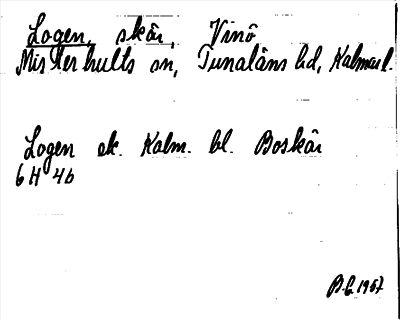 Logen, skär, Vinö
Misterhults sn, Tunaläns hd, Kalmar l.
Logen ek. Kalm. bl. Boskär
6 H 4b
B.G. 1957